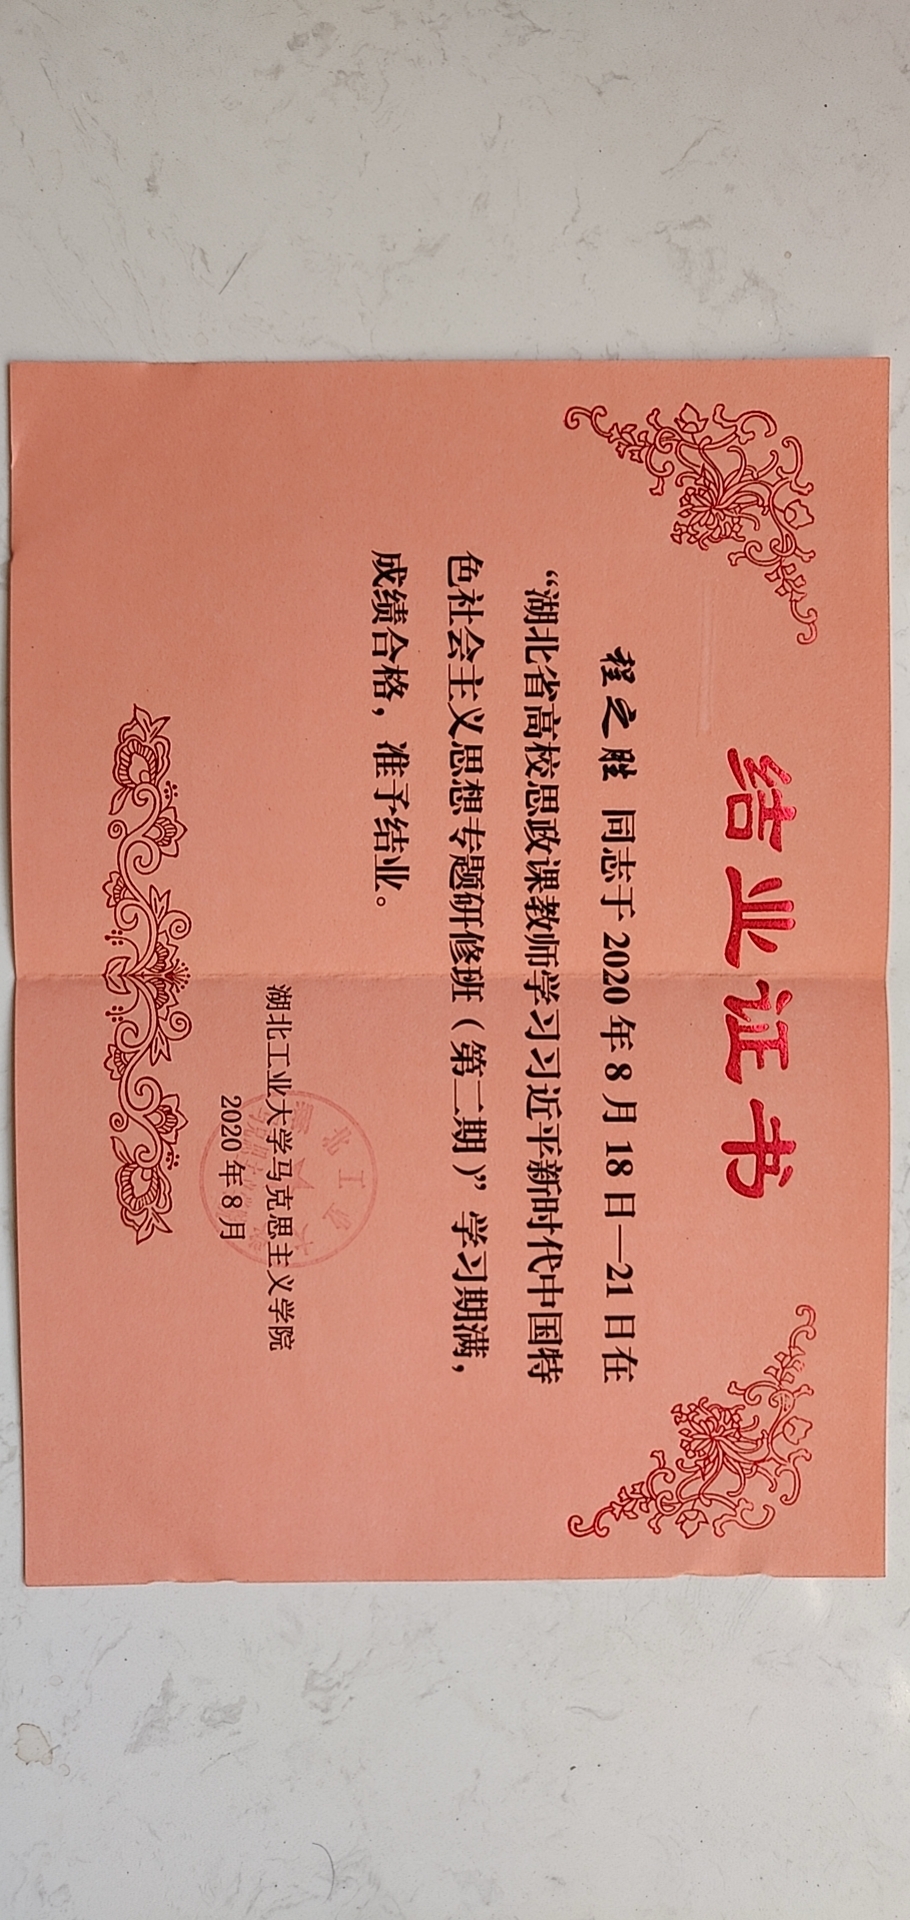 结业证书
程之胜 同志于 2020 年 8 月 18 日—21 日在
“湖北省高校思政课教师学习习近平新时代中国特
色社会主义思想专题研修班（第二期）”学习期满，
成绩合格，准予结业。
湖北工业大学马克思主义学院
2020 年 8 月
湖北工业大学